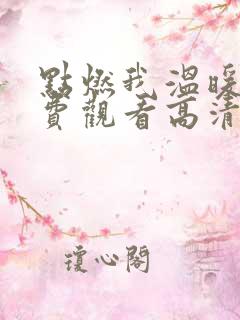 點燃我溫暖
費觀看高清
瓊心閣